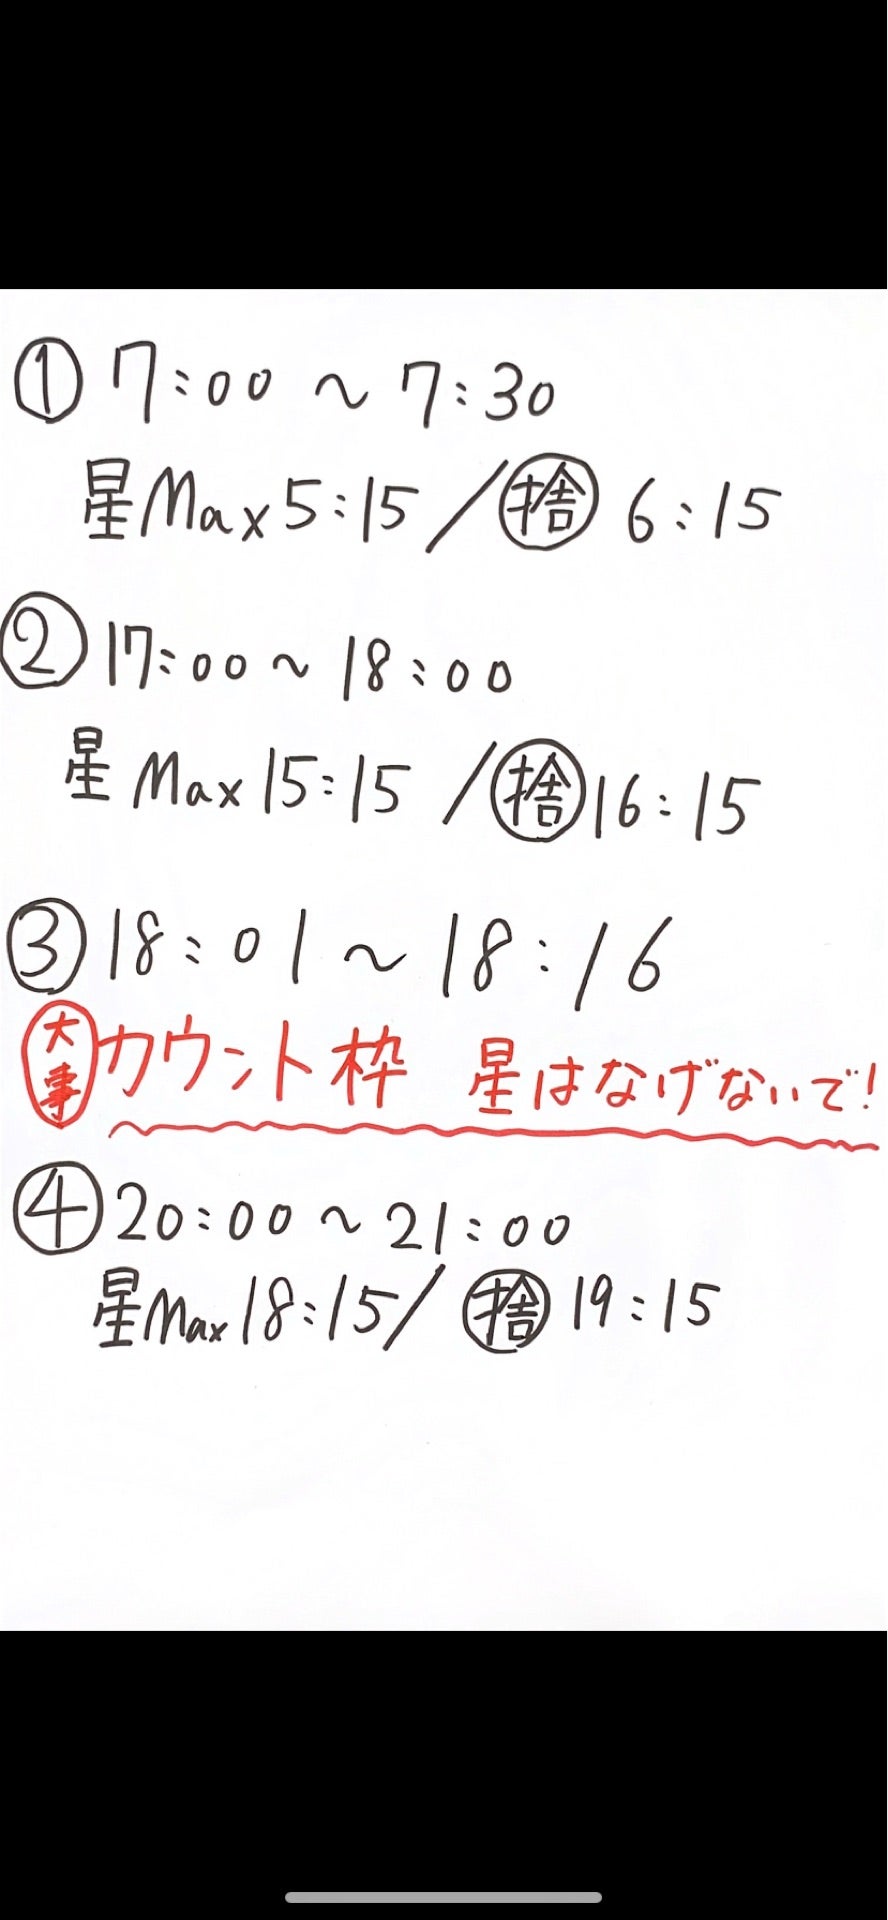 ① 7:00 〜 7:30
星Max 5:15 / ㊙捨 6:15
② 17:00 〜 18:00
星 Max 15:15 / 捨 16:15
③ 18:01 〜 18:16
大事 カウント枠 星はなげないで!
④ 20:00 〜 21:00
星Max 18:15 / 捨 19:15